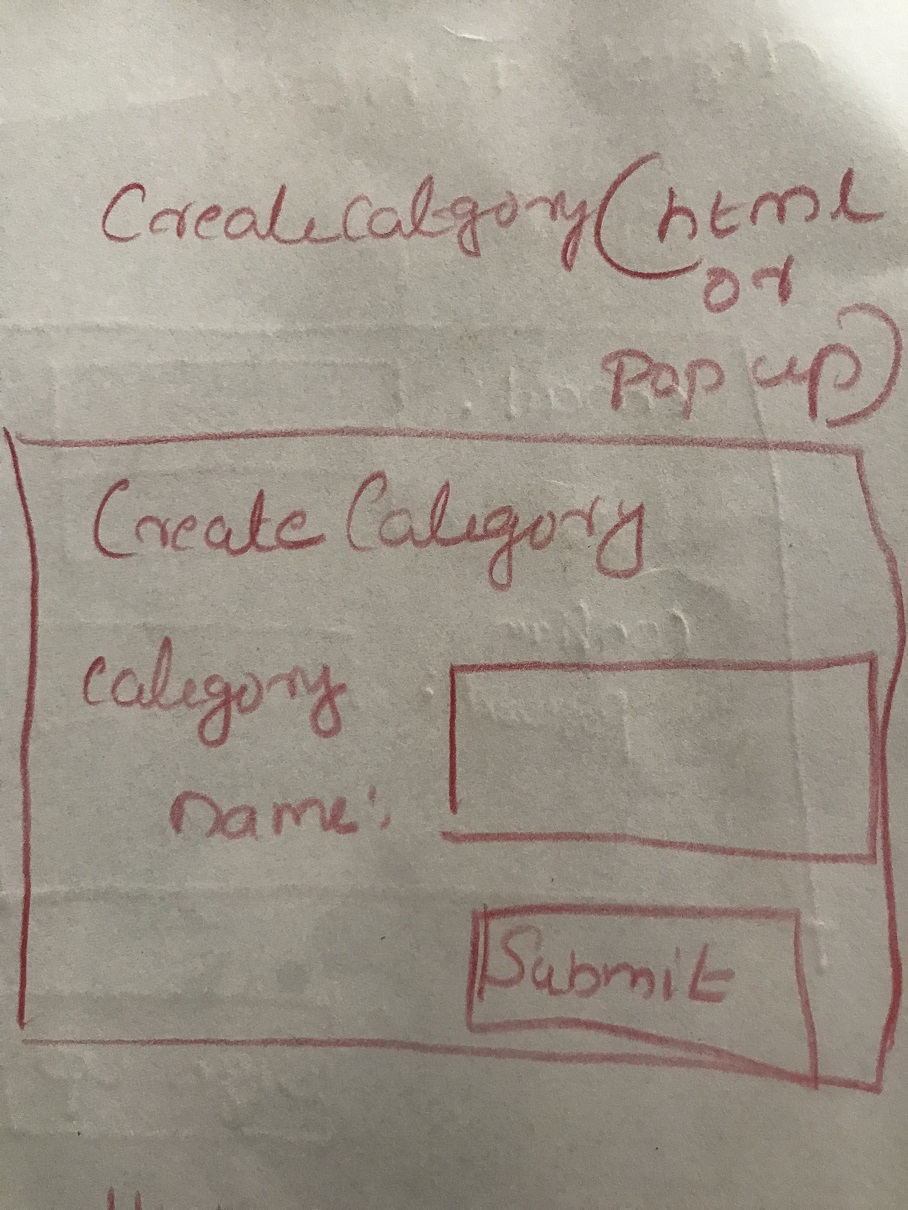 CreateCategory (html
or
Pop up)
Create Category
Category
name:
Submit